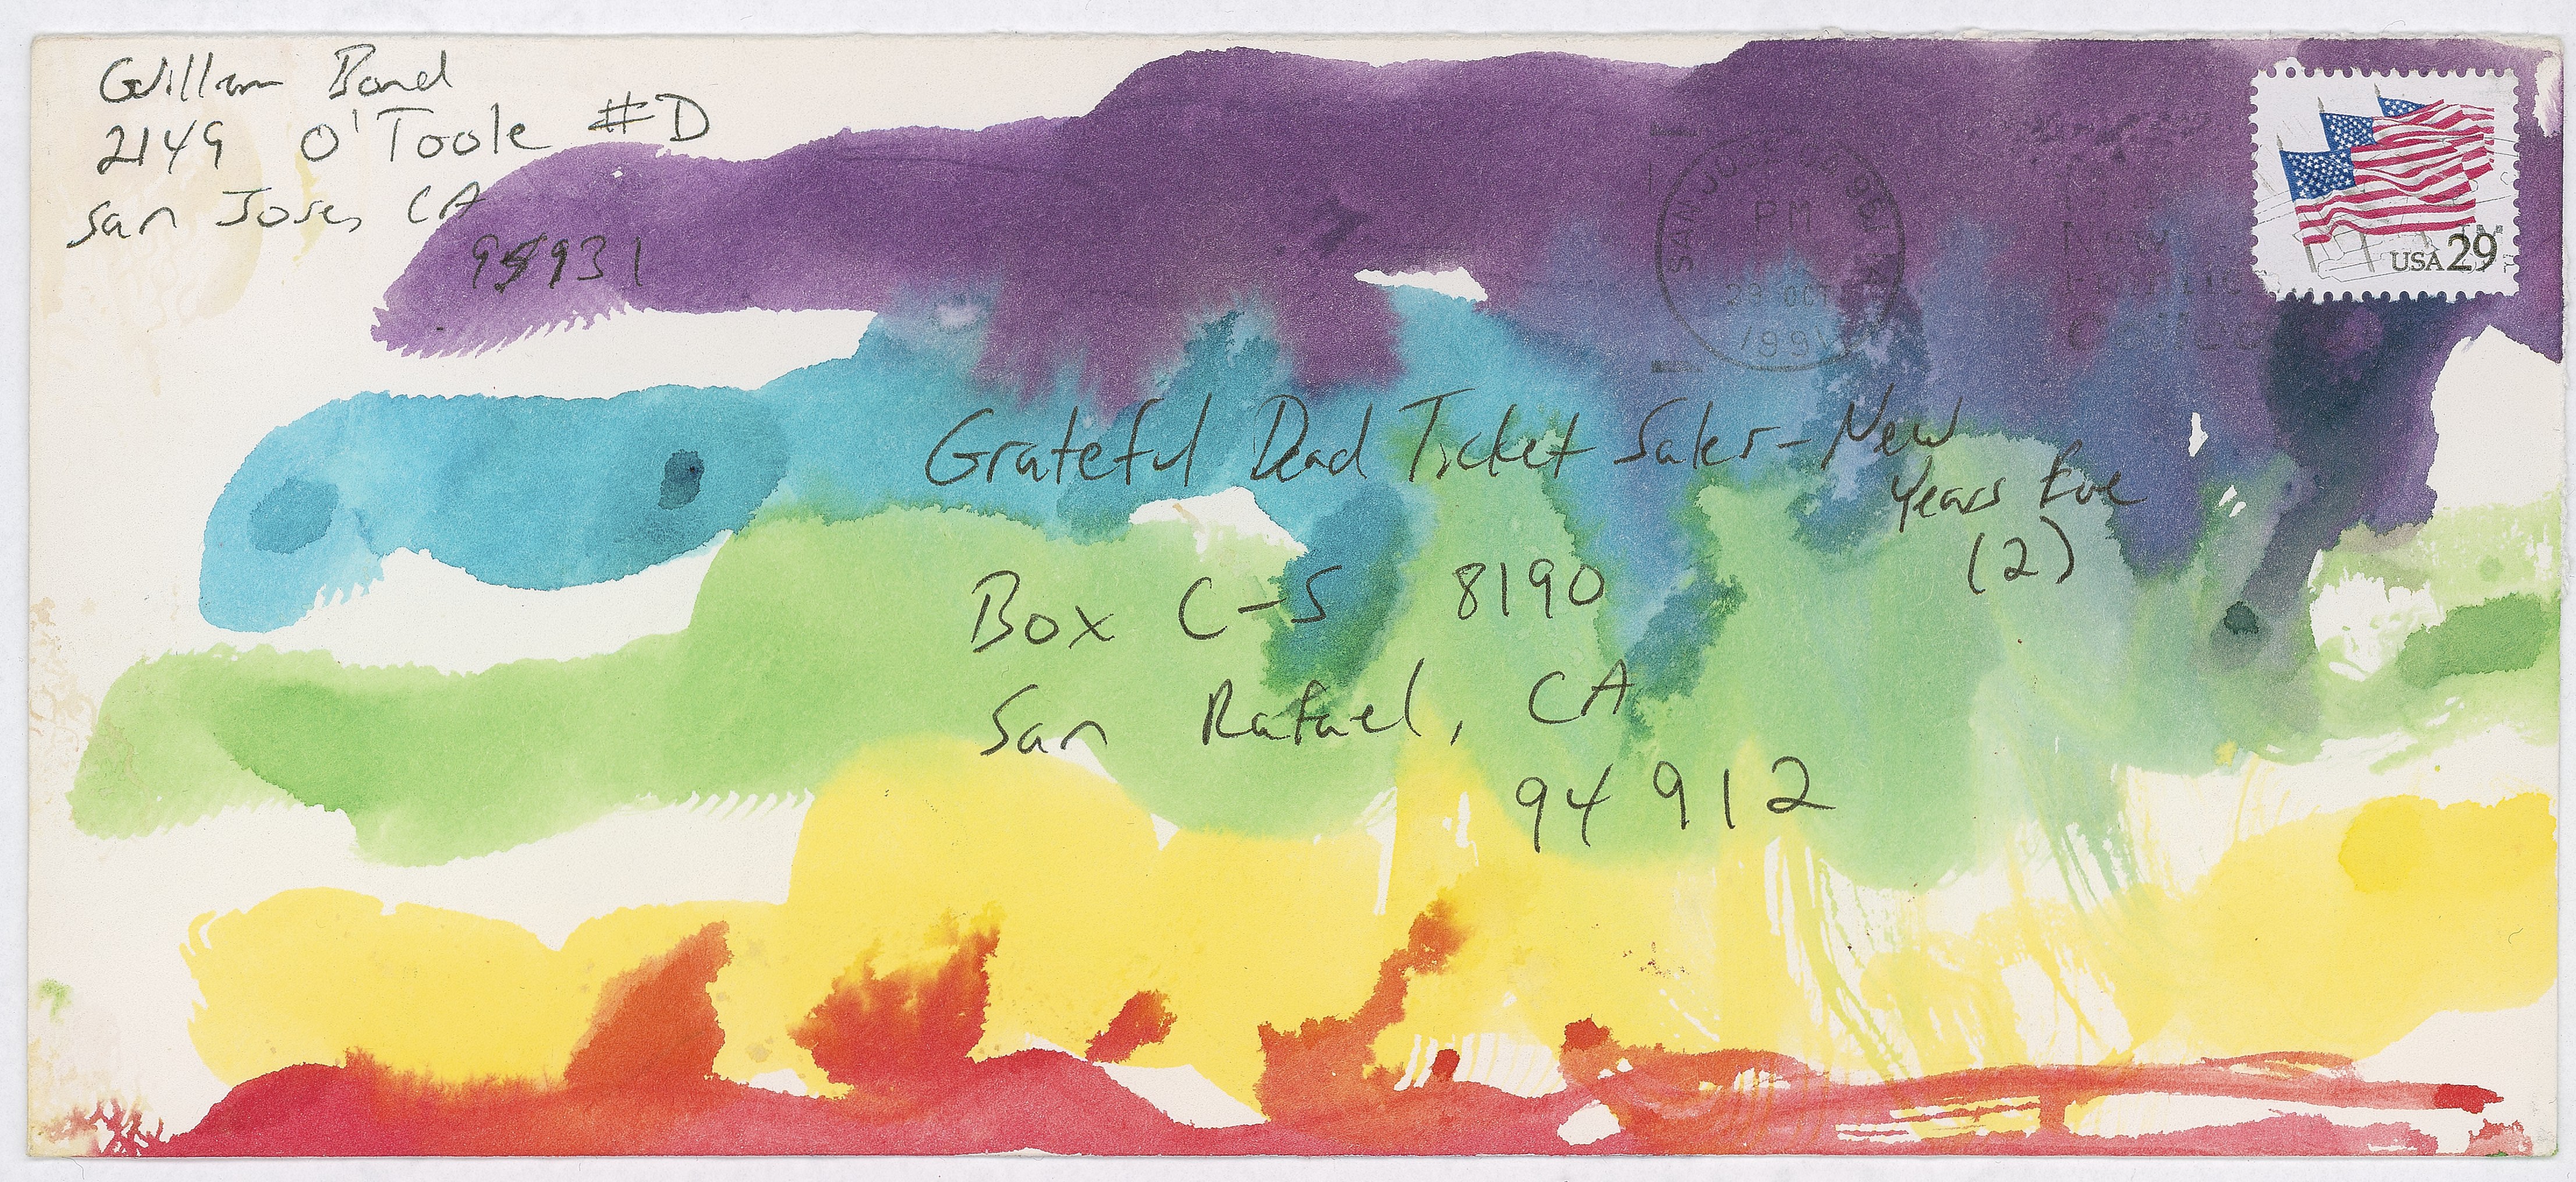 William Bond
2149 O'Toole #D
San Jose, CA
95931
Grateful Dead Ticket Sales-New
Years Eve
(2)
Box C-S 8190
San Rafael, CA
94912
SAN JO
PM
29 OCT
1991
USA 29